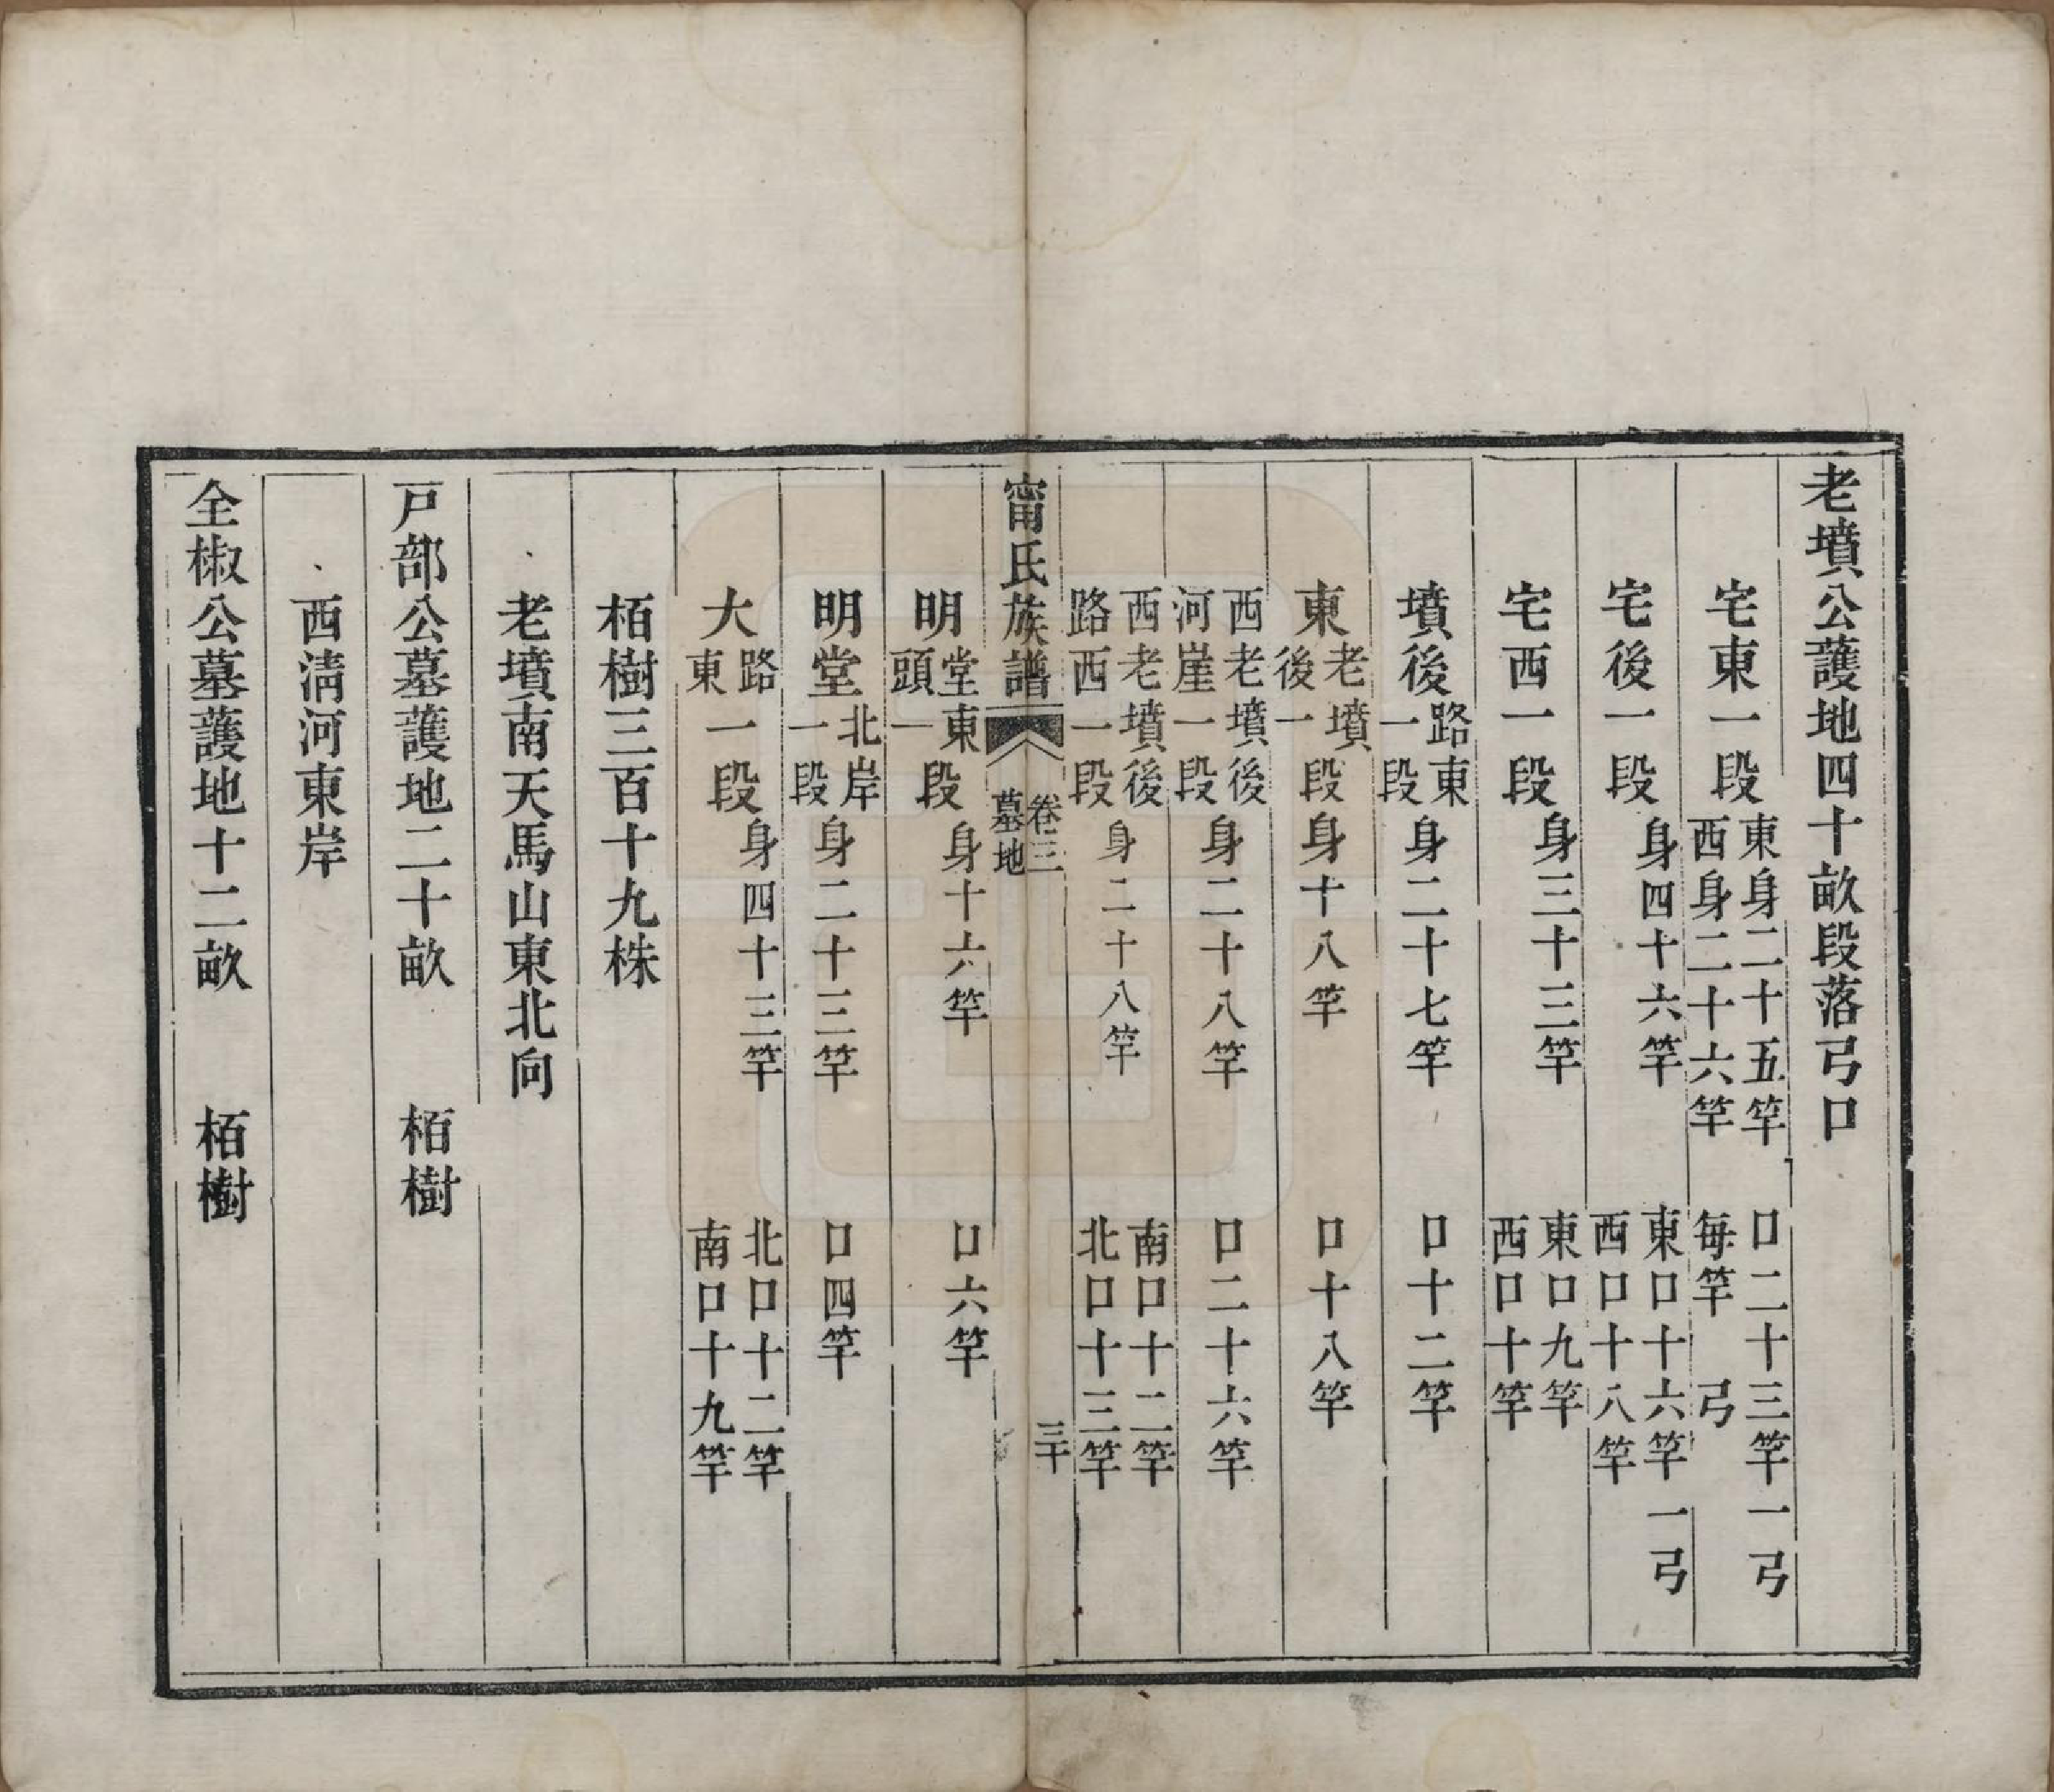 老墳公護地四十畝段落弓口
宅東一段東身二十五竿西身二十六竿 口二十三竿一弓每竿 弓
宅後一段身四十六竿 東口十六竿一弓西口十八竿
宅西一段身三十三竿 東口九竿西口十竿
墳後路東一段身二十七竿 口十二竿
東老墳後一段身十八竿 口十八竿
西老墳後河崖一段身二十八竿 口二十六竿
西老墳後路西一段身二十八竿 南口十二竿北口十三竿
甯氏族譜 卷三 墓地 三十
明堂東頭一段身十六竿 口六竿
明堂北岸一段身二十三竿 口四竿
大路東一段身四十三竿 北口十二竿南口十九竿
栢樹三百十九株
老墳南天馬山東北向
戶部公墓護地二十畝 栢樹
西淸河東岸
全椒公墓護地十二畝 栢樹